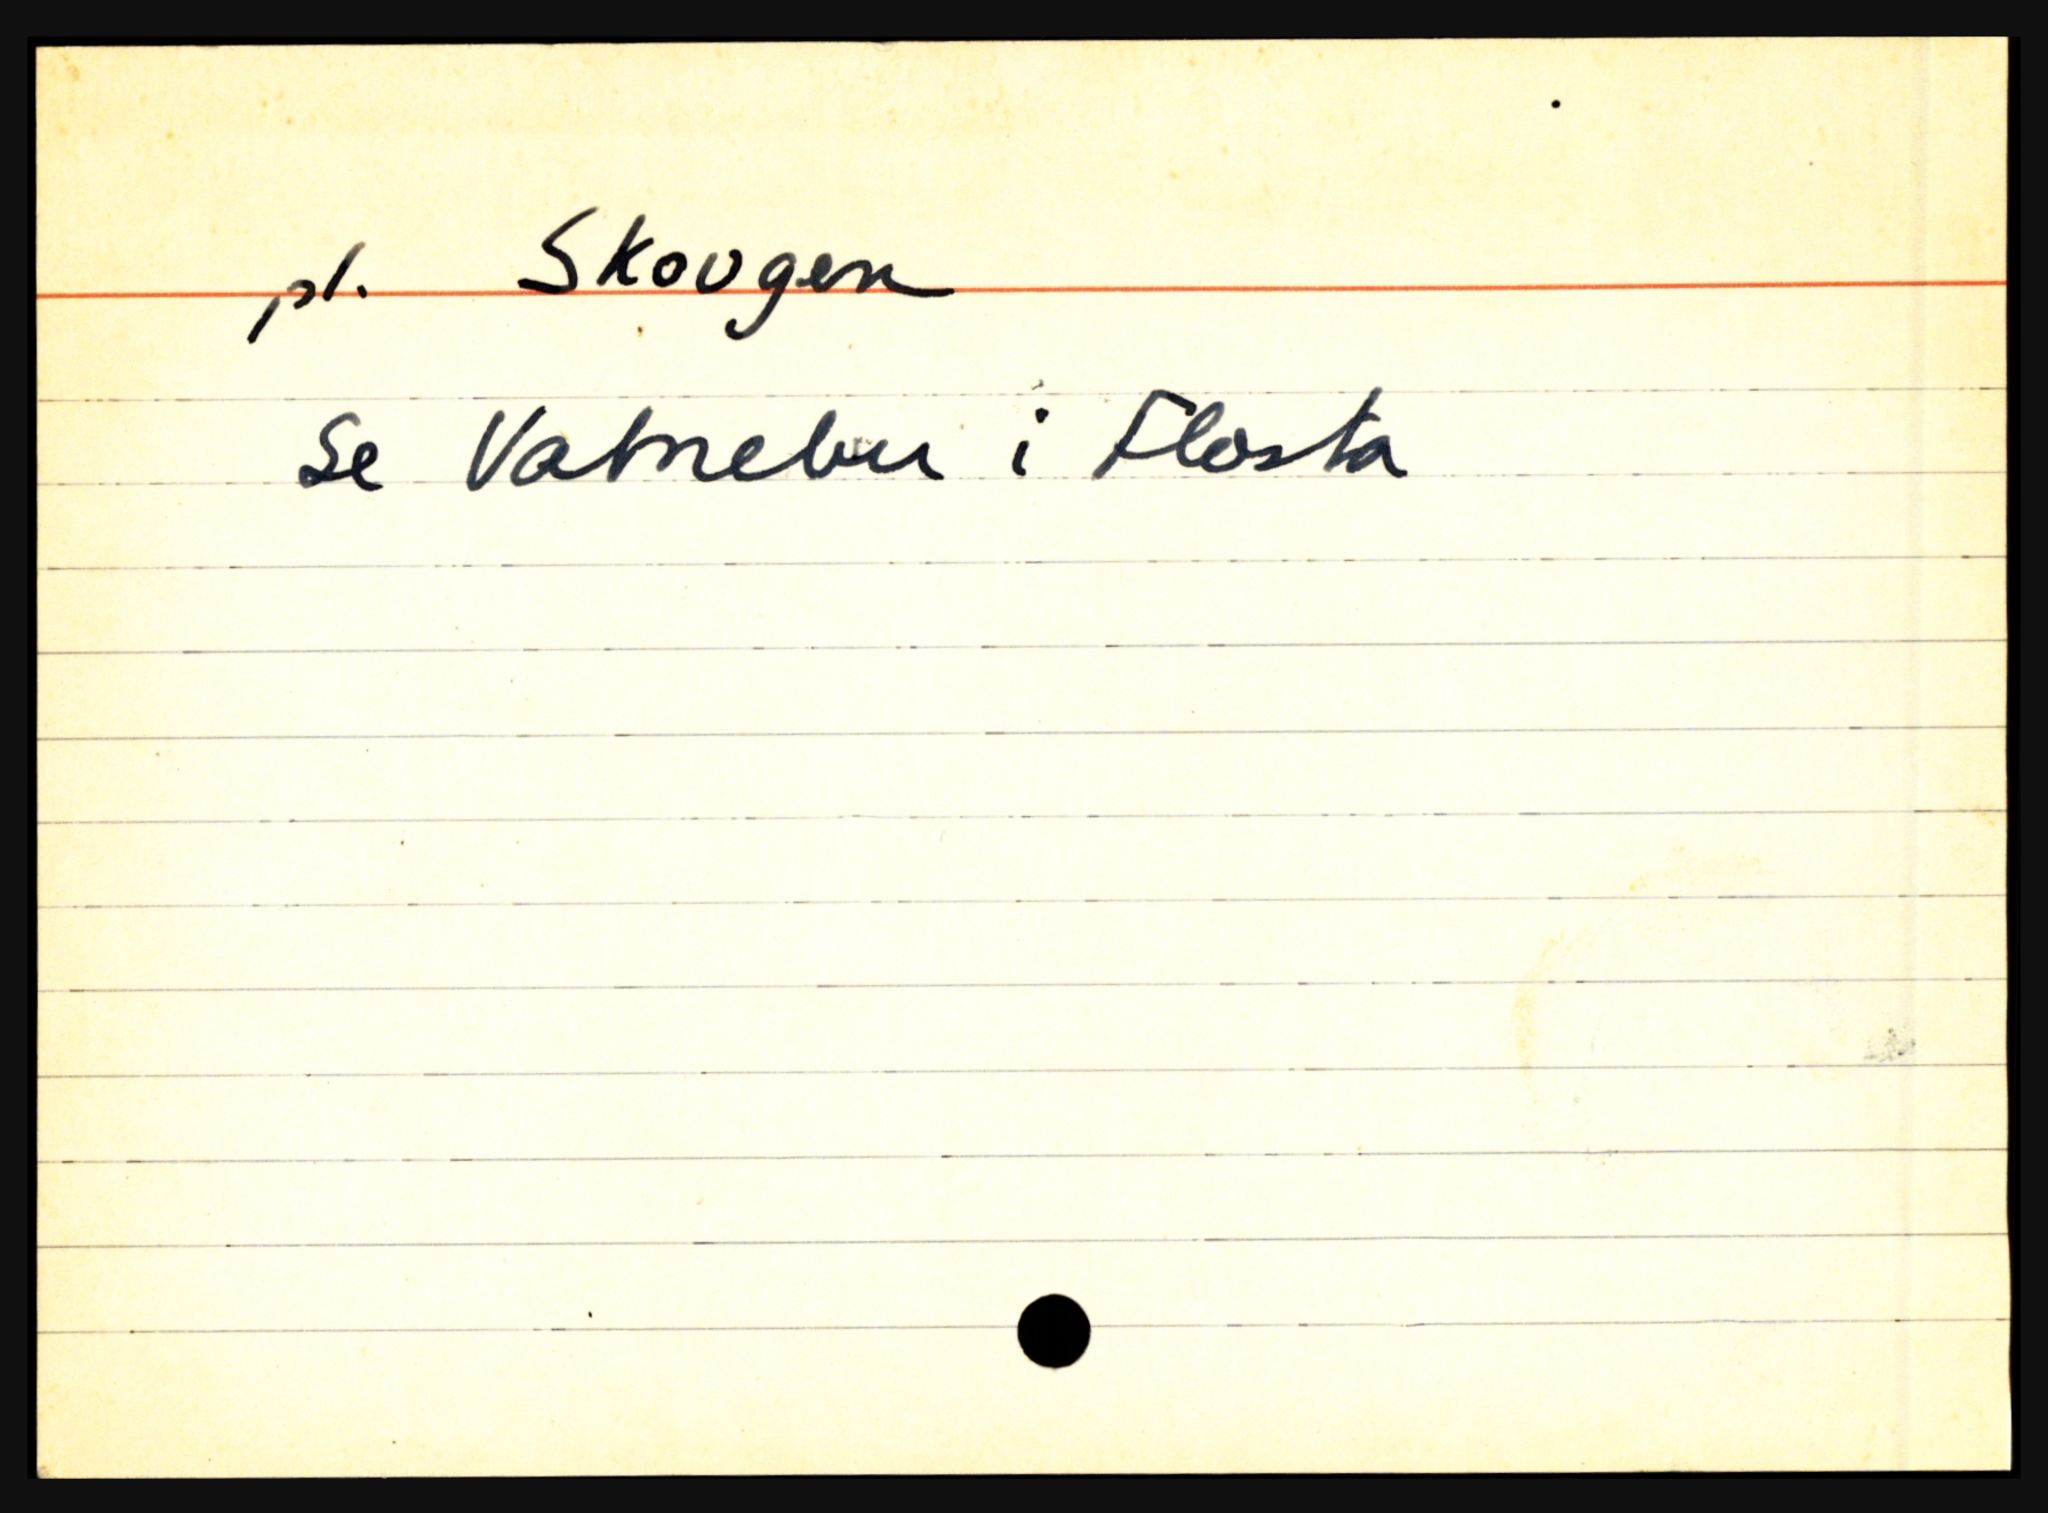 pl. Skovgen
Se Vatnebu i Flosta